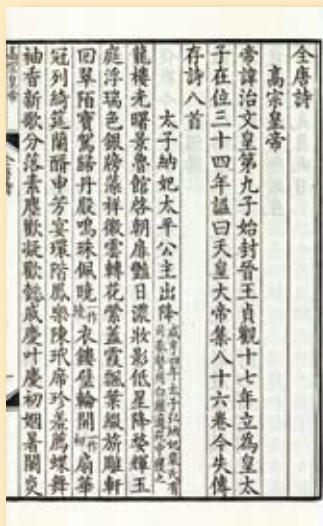 全唐詩
高宗皇帝
帝諱治文皇第九子始封晉王貞觀十七年立為皇太
子在位三十四年謚曰天皇大帝集八十六卷今失傳
存詩八首
太子納妃太平公主出降咸亨四年太子弘納妃裴氏有司奏贄用白雁適苑中獲之
龍樓光曙景魯館啓朝扉豔日濃妝影低星降婺輝玉
庭浮瑞色銀牓藻祥徽雲轉花縈蓋霞飄葉綴旂雕軒
回翠陌寶駕歸丹殿鳴珠佩曉一作衣鏤璧輪開一作初扇華
冠列綺筵蘭醑申芳宴環階鳳樂陳玳席珍羞薦蝶舞
袖香新歌分落素塵歡凝歡懿戚慶叶慶初姻暑闌炎